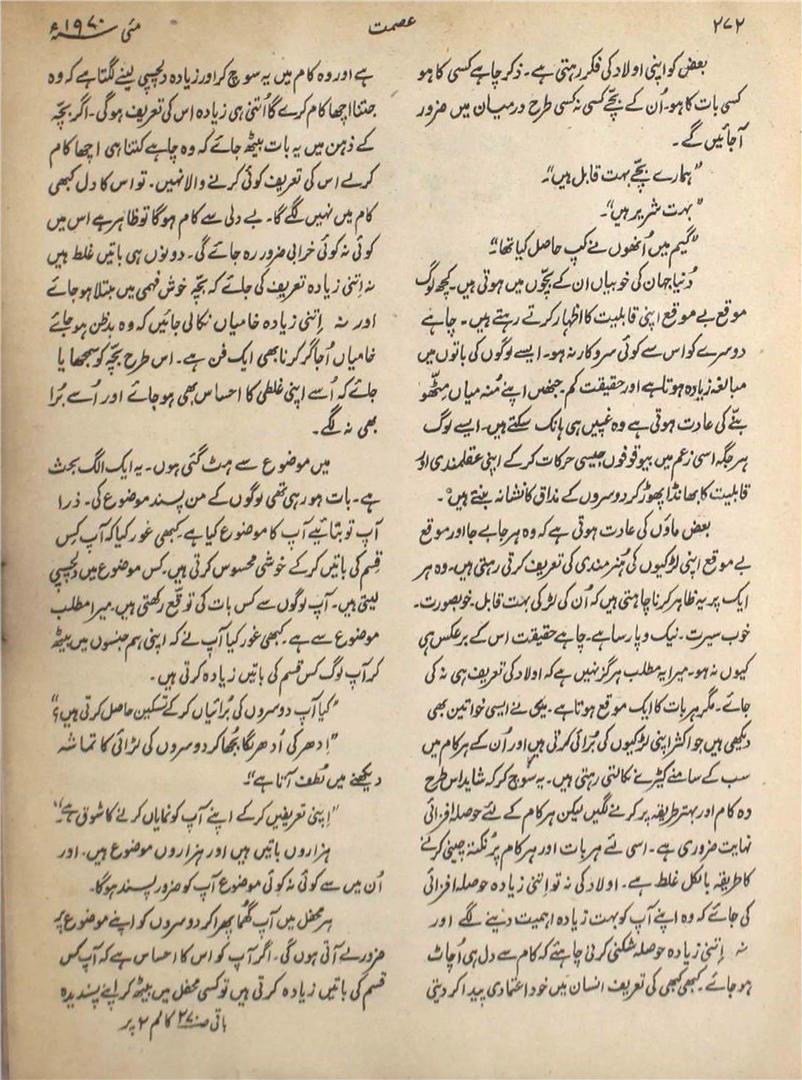 ۲۷۲
عصمت
مئی ۱۹۷۰ء
بعض کو اپنی اولاد کی فکر رہتی ہے۔ ذکر چاہے کسی کا ہو
کسی بات کا ہو۔ اُن کے بچّے کسی نہ کسی طرح درمیان میں ضرور
آجائیں گے۔
"ہمارے بچّے بہت قابل ہیں"۔
"بہت شریر ہیں"۔
"گیم میں اُنھوں نے کپ حاصل کیا تھا"۔
دُنیا جہان کی خوبیاں ان کے بچّوں میں ہوتی ہیں۔ کچھ لوگ
موقع بے موقع اپنی قابلیت کا اظہار کرتے رہتے ہیں۔ چاہے
دوسرے کو اس سے کوئی سروکار نہ ہو۔ ایسے لوگوں کی باتوں میں
مبالغہ زیادہ ہوتا ہے اور حقیقت کم۔ جنھیں اپنے مُنہ میاں مِٹھّو
بننے کی عادت ہوتی ہے وہ غپیں ہی ہانک سکتے ہیں۔ ایسے لوگ
ہر جگہ اسی زعم میں بیوقوفوں جیسی حرکات کر کے اپنی عقلمندی اور
قابلیت کا بھانڈا پھوڑ کر دوسروں کے مذاق کا نشانہ بنتے ہیں۔
بعض ماؤں کی عادت ہوتی ہے کہ وہ ہر جا بے جا اور موقع
بے موقع اپنی لڑکیوں کی ہُنر مندی کی تعریف کرتی رہتی ہیں۔ وہ ہر
ایک پر یہ ظاہر کرنا چاہتی ہیں کہ اُن کی لڑکی بہت قابل۔ خوبصورت۔
خوب سیرت۔ نیک و پارسا ہے۔ چاہے حقیقت اس کے برعکس ہی
کیوں نہ ہو۔ میرا یہ مطلب ہرگز نہیں ہے کہ اولاد کی تعریف ہی نہ کی
جائے۔ مگر ہر بات کا ایک موقع ہوتا ہے۔ میں نے ایسی خواتین بھی
دیکھی ہیں جو اکثر اپنی لڑکیوں کی بُرائی کرتی ہیں اور اُن کے ہر کام میں
سب کے سامنے کیڑے نکالتی رہتی ہیں۔ یہ سوچ کر کہ شاید اس طرح
وہ کام اور بہتر طریقہ پر کرنے لگیں لیکن ہر کام کے لئے حوصلہ افزائی
نہایت ضروری ہے۔ اسی لئے ہر بات اور ہر کام پر نُکتہ چینی کرنے
کا طریقہ بالکل غلط ہے۔ اولاد کی نہ تو اِتنی زیادہ حوصلہ افزائی
کی جائے کہ وہ اپنے آپ کو بہت زیادہ اہمیت دینے لگے اور
نہ اِتنی زیادہ حوصلہ شکنی کرنی چاہئے کہ کام سے دل ہی اُچاٹ
ہو جائے۔ کبھی کبھی کی تعریف انسان میں خود اعتمادی پیدا کر دیتی
ہے اور وہ کام میں یہ سوچ کر اور زیادہ دلچسپی لینے لگتا ہے کہ وہ
جتنا اچھا کام کرے گا اُتنی ہی زیادہ اس کی تعریف ہوگی۔ اگر بچّہ
کے ذہن میں یہ بات بیٹھ جائے کہ وہ چاہے کتنا ہی اچھا کام
کرلے اس کی تعریف کوئی کرنے والا نہیں۔ تو اس کا دل کبھی
کام میں نہیں لگے گا۔ بے دلی سے کام ہوگا تو ظاہر ہے اس میں
کوئی نہ کوئی خرابی ضرور رہ جائے گی۔ دونوں ہی باتیں غلط ہیں
نہ اِتنی زیادہ تعریف کی جائے کہ بچّہ خوش فہمی میں مبتلا ہو جائے
اور نہ اِتنی زیادہ خامیاں نکالی جائیں کہ وہ بدظن ہو جائے
خامیاں اُجاگر کرنا بھی ایک فن ہے۔ اس طرح بچّہ کو سمجھا یا
جائے کہ اُسے اپنی غلطی کا احساس بھی ہو جائے اور اُسے بُرا
بھی نہ لگے۔
میں موضوع سے ہٹ گئی ہوں۔ یہ ایک الگ بحث
ہے۔ بات ہو رہی تھی لوگوں کے من پسند موضوع کی۔ ذرا
آپ تو بتائیے آپ کا موضوع کیا ہے۔ کبھی غور کیا کہ آپ کِس
قِسم کی باتیں کر کے خوشی محسوس کرتی ہیں۔ کس موضوع میں دلچسپی
لیتی ہیں۔ آپ لوگوں سے کس بات کی توقّع رکھتی ہیں۔ میرا مطلب
موضوع سے ہے۔ کبھی غور کیا آپ نے کہ اپنی ہم جنسوں میں بیٹھ
کر آپ لوگ کس قسم کی باتیں زیادہ کرتی ہیں۔
"کیا آپ دوسروں کی بُرائیاں کر کے تسکین حاصل کرتی ہیں؟"
"اِدھر کی اُدھر لگا بُجھا کر دوسروں کی لڑائی کا تماشہ
دیکھنے میں لُطف آتا ہے"۔
"اپنی تعریفیں کر کے اپنے آپ کو نمایاں کرنے کا شوق ہے"۔
ہزاروں باتیں ہیں اور ہزاروں موضوع ہیں۔ اور
اُن میں سے کوئی نہ کوئی موضوع آپ کو ضرور پسند ہوگا۔
ہر محفل میں آپ گھُما پھرا کر دوسروں کو اپنے موضوع پر
ضرور لے آتی ہوں گی۔ اگر آپ کو اس کا احساس ہے کہ آپ کس
قسم کی باتیں زیادہ کرتی ہیں تو کسی محفل میں بیٹھ کر اپنے پسندیدہ
باقی صـ۲۷۰ کالم ۲ پر